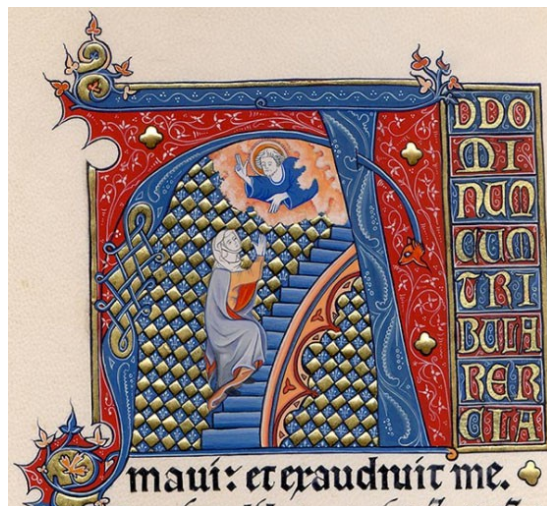 ADDO
MI
NUM
CUM
TRI
BULA
RER
CLA
maui: et exaudiuit me.